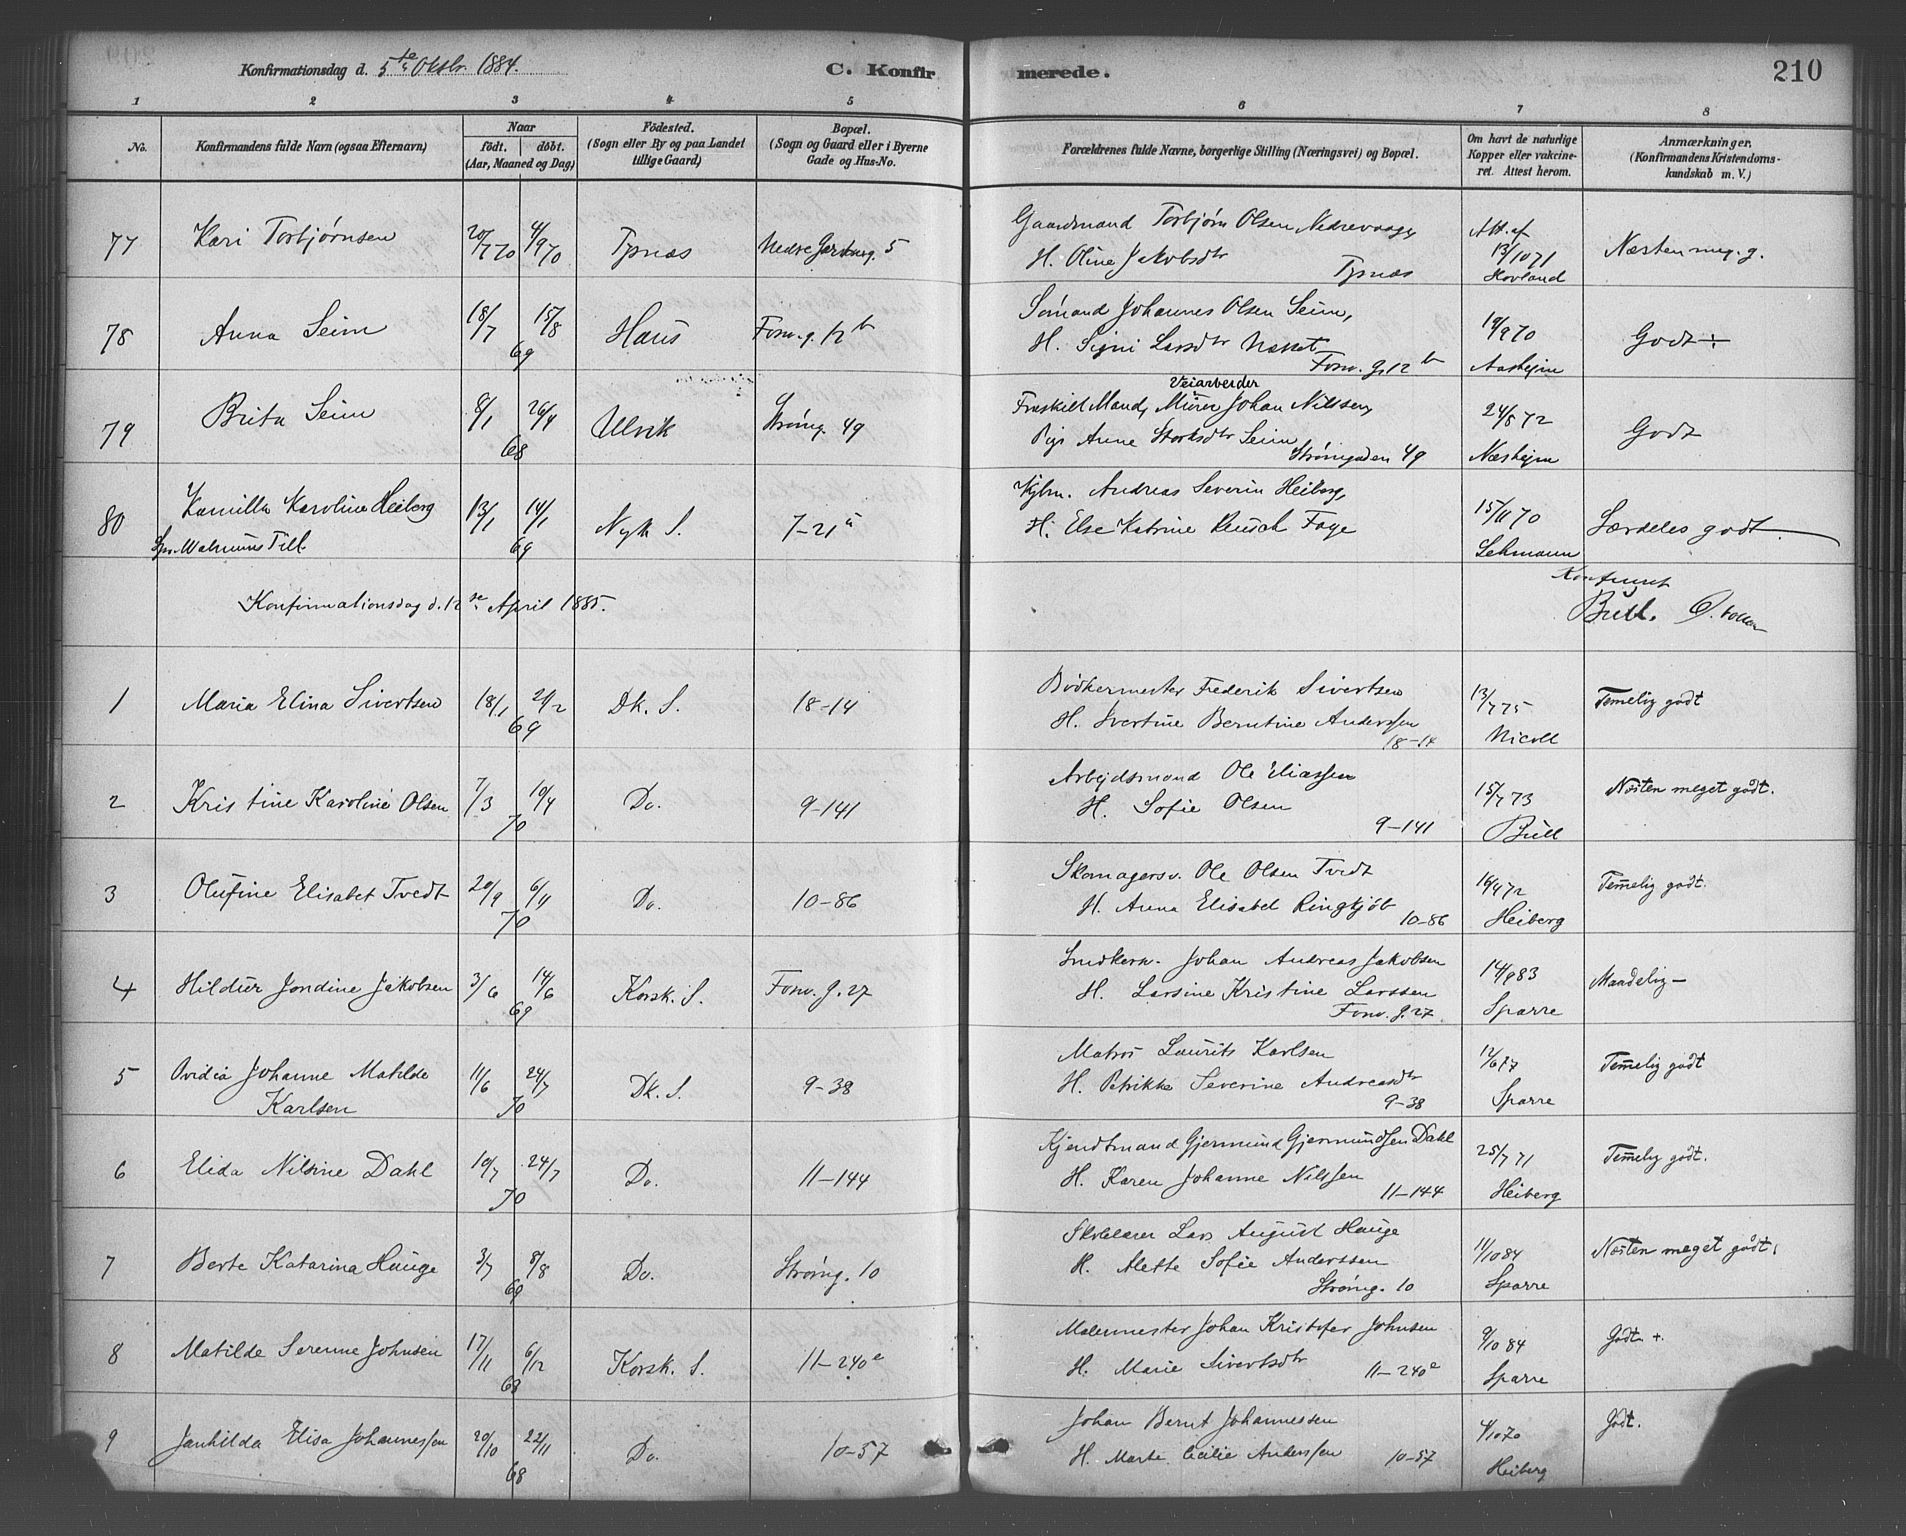 Konfirmationsdag d. 5te Oktbr. 1884. C. Konfirmerede. 210
1 2 3 4 5 6 7 8
No. Konfirmandens fulde Navn (ogsaa Efternavn) Naar født. døbt. (Aar, Maaned og Dag) Fødested. (Sogn eller By og paa Landet tillige Gaard) Bopæl. (Sogn og Gaard eller i Byerne Gade og Hus-No. Forældrenes fulde Navne, borgerlige Stilling (Næringsvei) og Bopæl. Om havt de naturlige Kopper eller vakcineret. Attest herom. Anmærkninger. (Konfirmandens Kristendomskundskab m. V.)
77 Kari Torbjørnsen 20/7 70 4/9 70 Tysnæs Nedre 5
Gaardmand Torbjørn Olsen Nedrevaage, H. Oline Jakobsdtr Tysnæs
Att. af 13/10 71 Hovland Næsten meg. g.
78 Anna Seim 18/7 15/8 69 Haus Fosw. g. 12 b
Sømand Johannes Olsen Seim, H. Signi Larsdtr Næsset Fosw. g. 12 b
19/9 70 Aashejm Godt ÷
79 Brita Seim 8/1 26/4 68 Ulvik Strømg. 49
Fraskilt Mand, Veiarbeider Murer Johan Nilsen, Pige Anne Storksdtr Seim Strømgaden 49
24/8 72 Næshejm Godt
80 Kamilla Karoline Heiberg 13/1 14/1 69 Nyk S. 7-21 a
Kjbm. Andreas Severin Heiberg, H. Else Katrine Reusch Faye
15/11 70 Lehmann Særdeles godt
Konfirmationsdag d. 12te April 1885.
Konfirmeret Bull.
1 Maria Elina Sivertsen 18/1 21/2 69 Dk. S. 18-14
Bødkermester Frederik Sivertsen H. Ivertine Berntine Anderssen 18-14
13/7 75 Nicoll Temelig godt
2 Kristine Karoline Olsen 7/3 10/4 70 Do. 9-141
Arbejdsmand Ole Eliassen H. Sofie Olsen 9-141
15/7 73 Bull Næsten meget godt.
3 Olufine Elisabet Tvedt 20/9 6/11 70 Do. 10-86
Skomagersv. Ole Olsen Tvedt H. Anna Elisabet Ringkjøb 10-86
16/4 72 Heiberg Temelig godt.
4 Hildur Jondine Jakobsen 3/6 14/6 69 Korsk. S. Fosw. g. 27
Snedkersv. Johan Andreas Jakobsen H. Larsine Kristine Larssen Fosw. g. 27
14/9 83 Sparre Maadelig —
5 Ovidia Johanne Matilde Karlsen 11/6 24/7 70 Dk. S. 9-38
Matros Laurits Karlsen H. Petrikke Severine Andreasdtr 9-38
12/6 77 Sparre Temelig godt
6 Elida Nilsine Dahl 10/7 24/7 70 Do. 11-144
Kjendtmand Gjermund Gjermundsen Dahl H. Karen Johanne Nilssen 11-144
25/7 71 Heiberg Temelig godt.
7 Berte Katarina Hauge 3/7 8/8 69 Do. Strømg. 10
Skolelærer Lars August Hauge H. Alette Sofie Anderssen Strømg. 10
11/10 84 Sparre Næsten meget godt.
8 Matilde Serenne Johnsen 17/11 6/12 68 Korsk. S. 11-240 e
Malermester Johan Kristofer Johnsen H. Marie Sivertsdtr 11-240 e
9/10 84 Sparre Godt +
9 Janhilda Elisa Johannessen 20/10 22/11 68 Do. 10-57
Johan Bernt Johannessen H. Marte Cecilie Anderssen 10-57
4/10 70 Heiberg Godt.